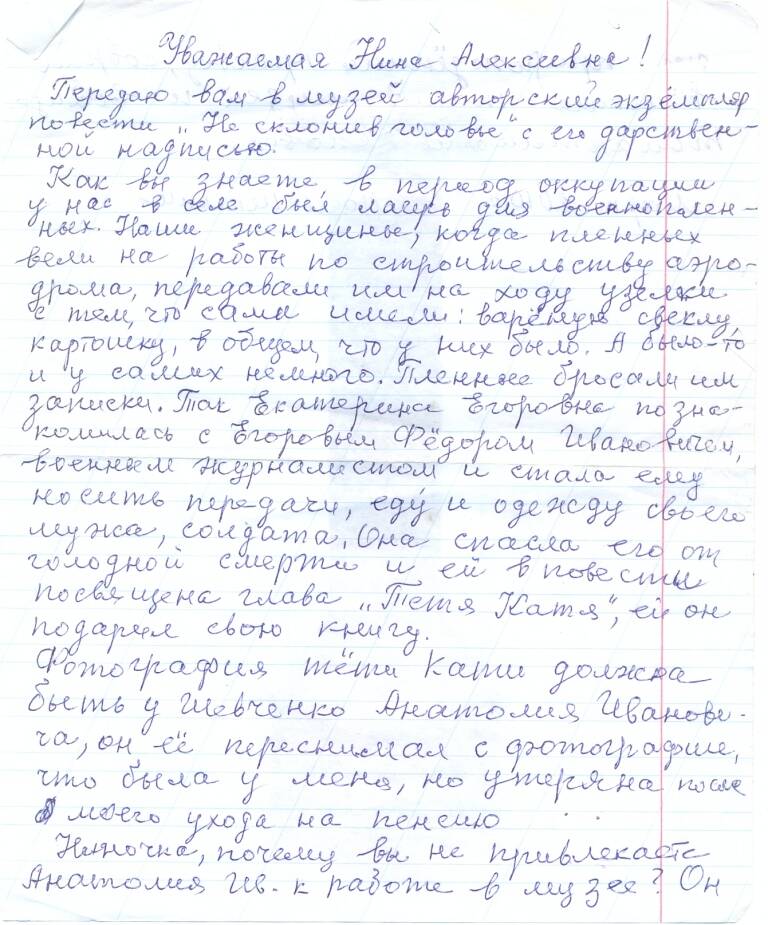 Уважаемая Нина Алексеевна!
Передаю вам в музей авторский экземпляр
повести „Не склонив головы" с его дарствен-
ной надписью.
Как вы знаете, в период оккупации
у нас в селе был лагерь для военноплен-
ных. Наши женщины, когда пленных
вели на работы по строительству аэро-
дрома, передавали им на ходу узелки
с тем, что сами имели: варёную свеклу,
картошку, в общем, что у них было. А было-то
и у самих немного. Пленные бросали им
записки. Так Екатерина Егоровна позна-
комилась с Егоровым Фёдором Ивановичем,
военным журналистом и стала ему
носить передачи, еду и одежду своего
мужа, солдата. Она спасла его от
голодной смерти и ей в повести
посвящена глава „Тётя Катя", ей он
подарил свою книгу.
Фотография тёти Кати должна
быть у Шевченко Анатолия Иванови-
ча, он её переснимал с фотографии,
что была у меня, но утеряна после
моего ухода на пенсию
Ниночка, почему вы не привлекаете
Анатолия Ив. к работе в музее? Он